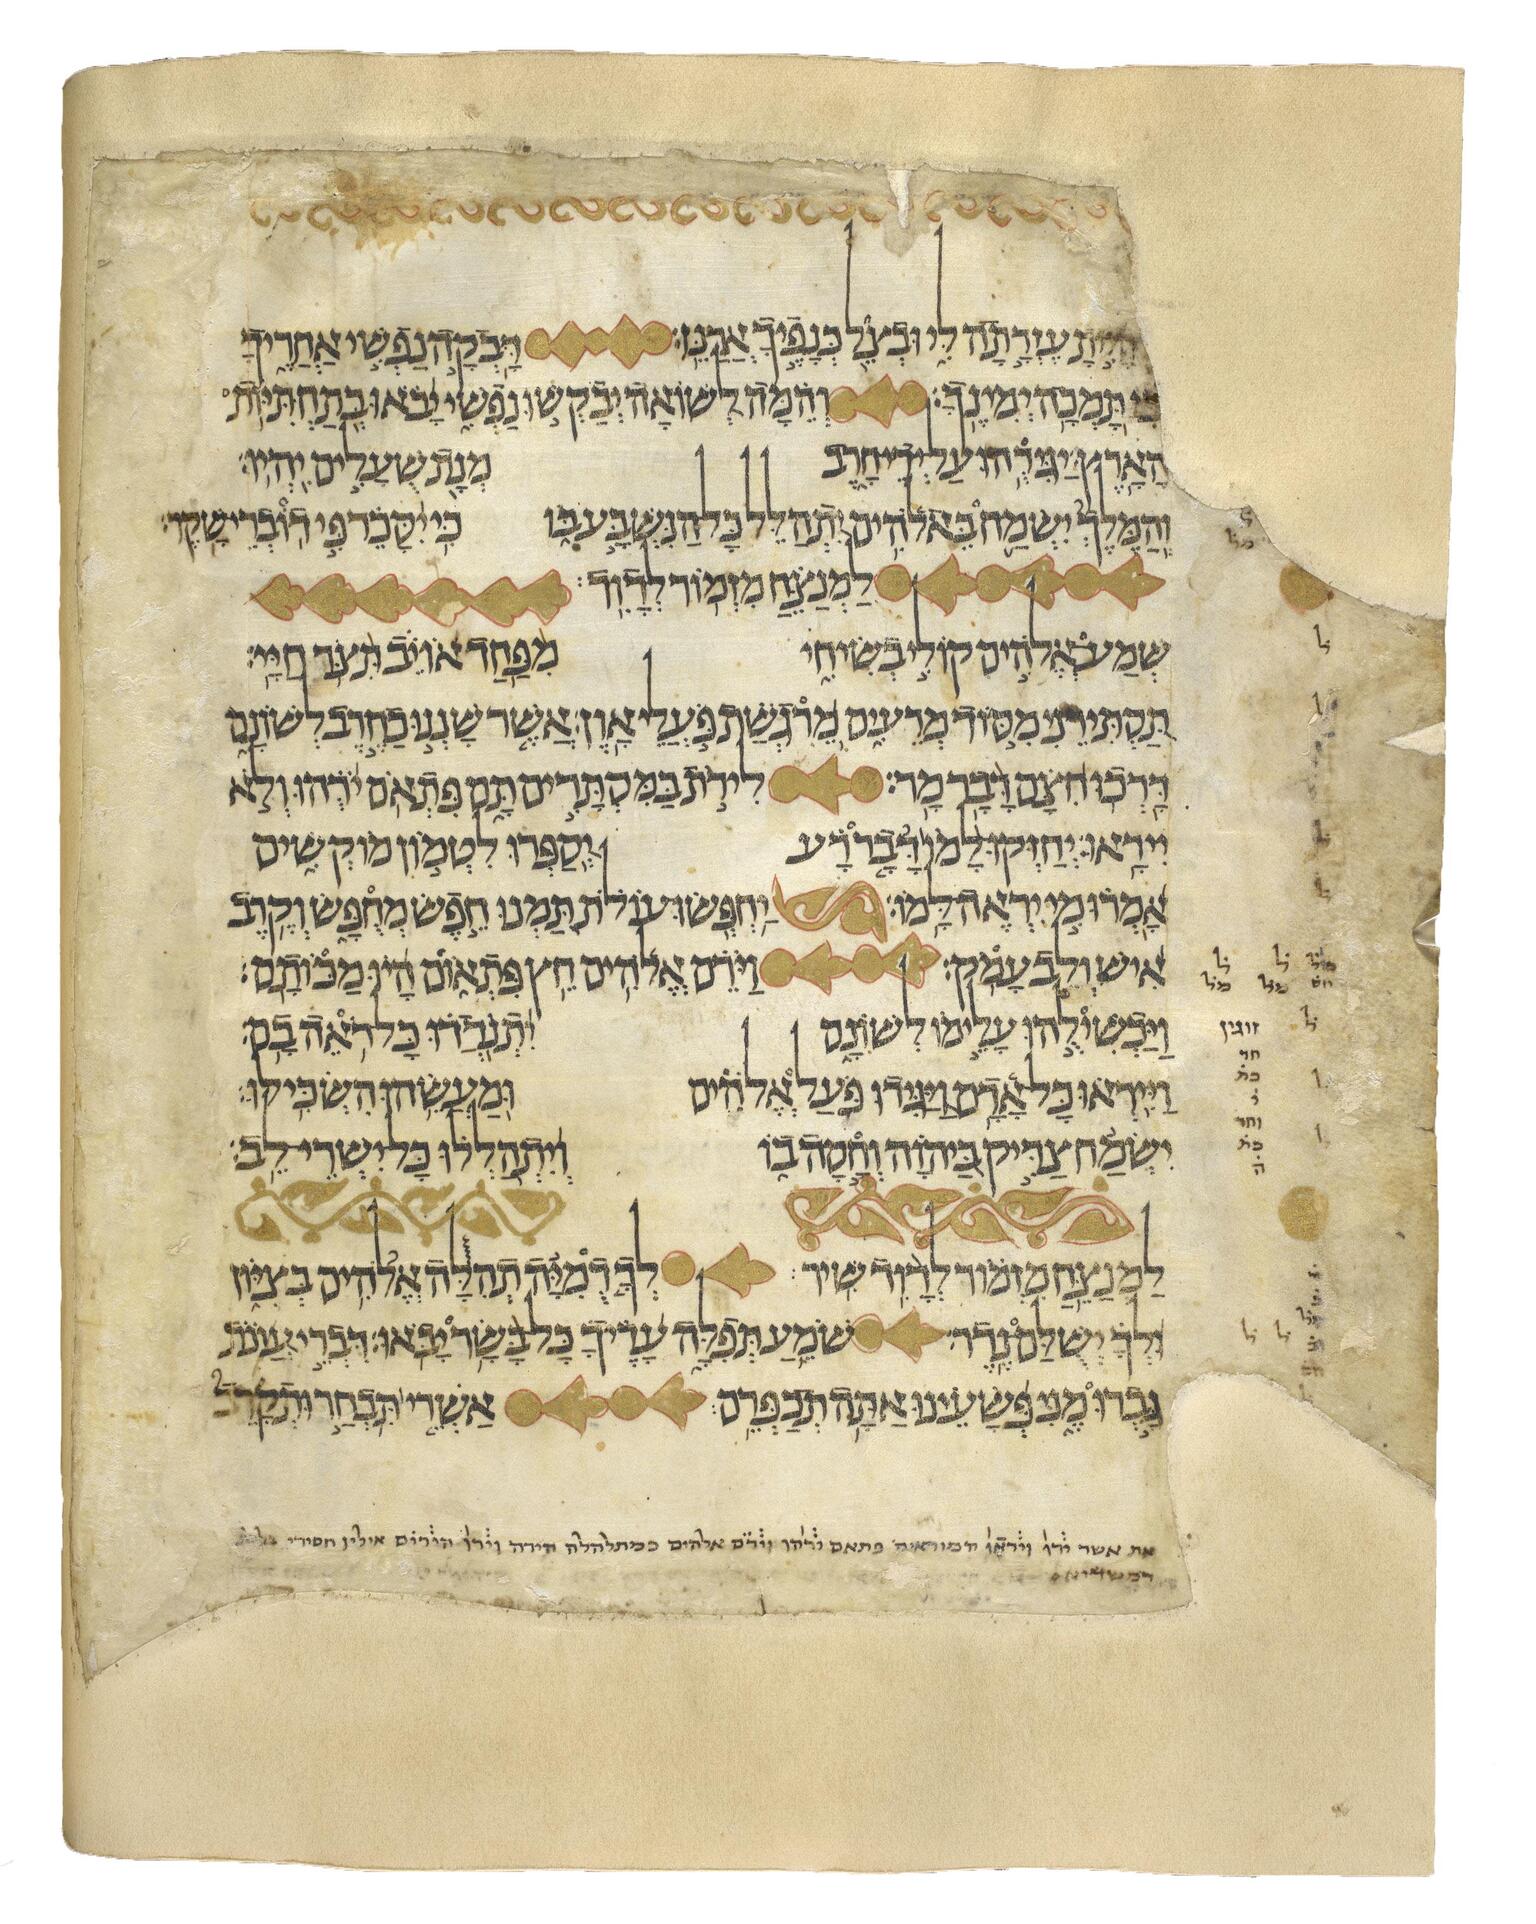 הָיִיתָ עֶזְרָתָה לִּי וּבְצֵל כְּנָפֶיךָ אֲרַנֵּן׃ דָּבְקָה נַפְשִׁי אַחֲרֶיךָ
בִּי תָּמְכָה יְמִינֶךָ׃ וְהֵמָּה לְשׁוֹאָה יְבַקְשׁוּ נַפְשִׁי יָבֹאוּ בְּתַחְתִּיּוֹת
הָאָרֶץ׃ יַגִּירֻהוּ עַל יְדֵי חָרֶב מְנָת שֻׁעָלִים יִהְיוּ׃
וְהַמֶּלֶךְ יִשְׂמַח בֵּאלֹהִים יִתְהַלֵּל כָּל הַנִּשְׁבָּע בּוֹ כִּי יִסָּכֵר פִּי דוֹבְרֵי שָׁקֶר׃
לַמְנַצֵּחַ מִזְמוֹר לְדָוִד׃
שְׁמַע אֱלֹהִים קוֹלִי בְשִׂיחִי מִפַּחַד אוֹיֵב תִּצֹּר חַיָּי׃
תַּסְתִּירֵנִי מִסּוֹד מְרֵעִים מֵרִגְשַׁת פֹּעֲלֵי אָוֶן׃ אֲשֶׁר שָׁנְנוּ כַחֶרֶב לְשׁוֹנָם
דָּרְכוּ חִצָּם דָּבָר מָר׃ לִירֹת בַּמִּסְתָּרִים תָּם פִּתְאֹם יֹרֻהוּ וְלֹא
יִירָאוּ׃ יְחַזְּקוּ לָמוֹ דָּבָר רָע יְסַפְּרוּ לִטְמוֹן מוֹקְשִׁים
אָמְרוּ מִי יִרְאֶה לָּמוֹ׃ יַחְפְּשׂוּ עוֹלֹת תַּמְנוּ חֵפֶשׂ מְחֻפָּשׂ וְקֶרֶב
אִישׁ וְלֵב עָמֹק׃ וַיֹּרֵם אֱלֹהִים חֵץ פִּתְאוֹם הָיוּ מַכּוֹתָם׃
וַיַּכְשִׁילֻהוּ עָלֵימוֹ לְשׁוֹנָם יִתְנֹדֲדוּ כָּל רֹאֵה בָם׃
וַיִּירְאוּ כָּל אָדָם וַיַּגִּידוּ פֹּעַל אֱלֹהִים וּמַעֲשֵׂהוּ הִשְׂכִּילוּ׃
יִשְׂמַח צַדִּיק בַּיהוָה וְחָסָה בוֹ וְיִתְהַלְלוּ כָּל יִשְׁרֵי לֵב׃
לַמְנַצֵּחַ מִזְמוֹר לְדָוִד שִׁיר׃ לְךָ דֻמִיָּה תְהִלָּה אֱלֹהִים בְּצִיּוֹן
וּלְךָ יְשֻׁלַּם נֶדֶר׃ שֹׁמֵעַ תְּפִלָּה עָדֶיךָ כָּל בָּשָׂר יָבֹאוּ׃ דִּבְרֵי עֲוֺנֹת
גָּבְרוּ מֶנִּי פְּשָׁעֵינוּ אַתָּה תְכַפְּרֵם׃ אַשְׁרֵי תִּבְחַר וּתְקָרֵב
זוגין
את אשר ירו פתאם ירהו וירם אלהים